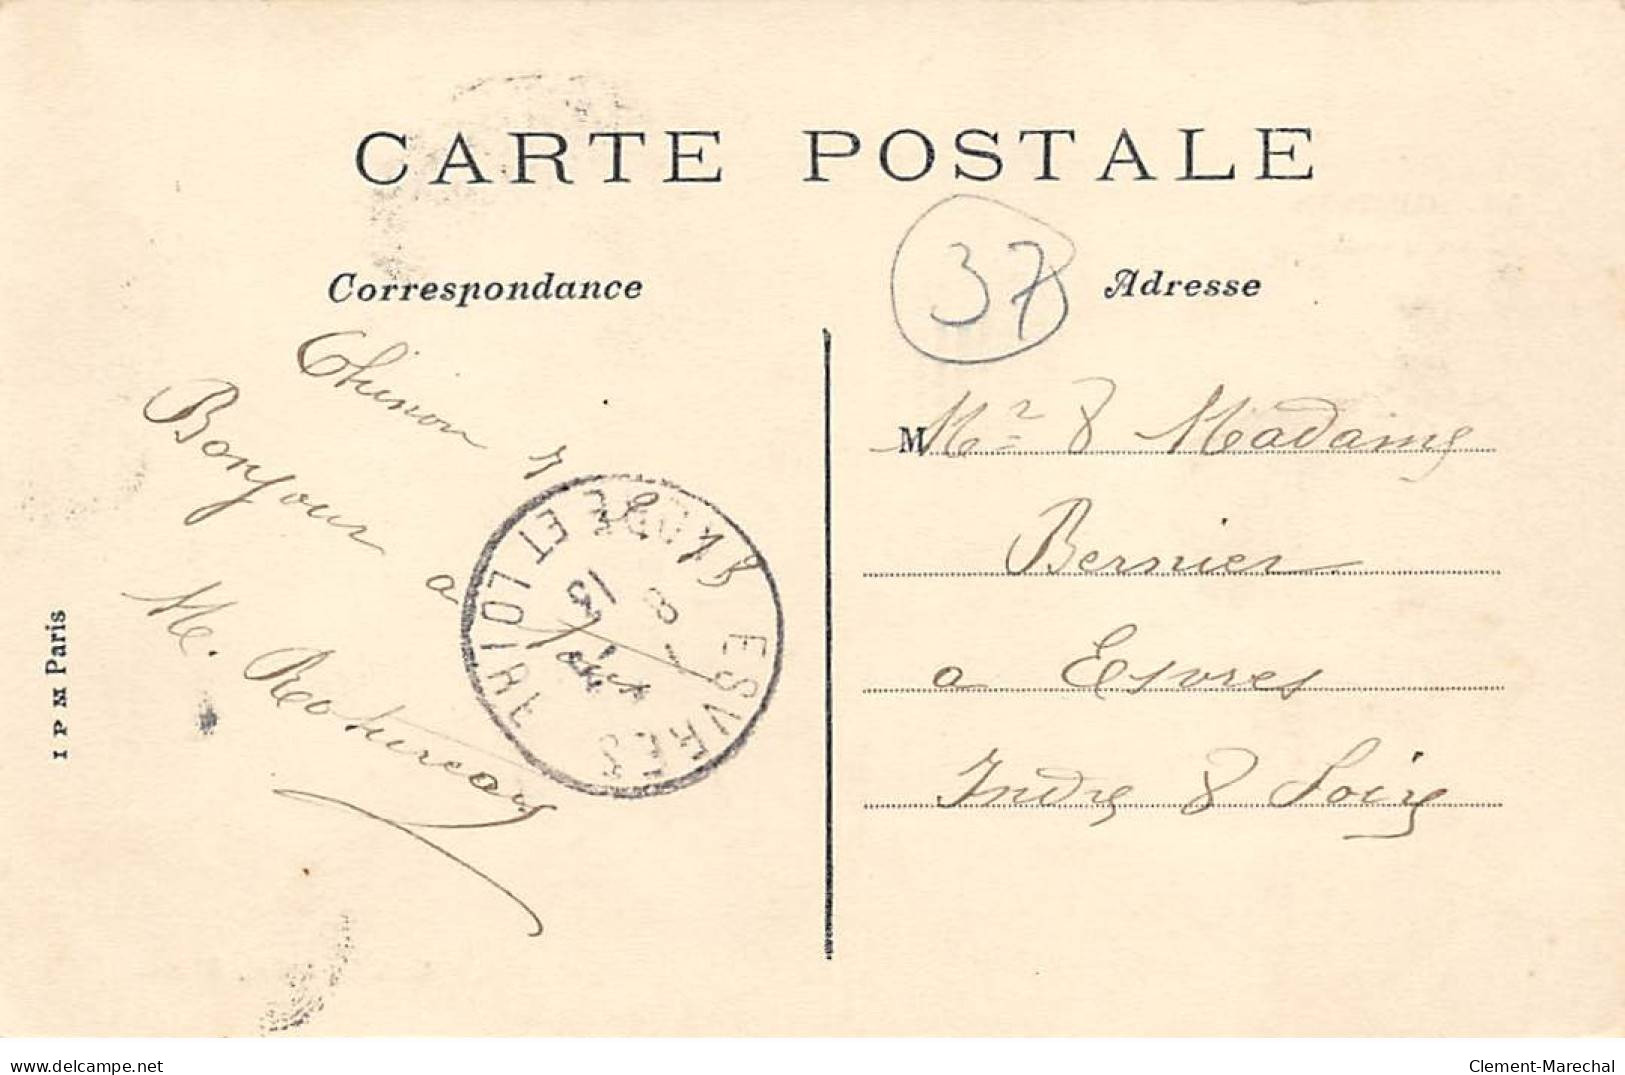 CARTE POSTALE
Correspondance
37
Adresse
Chinon
Bonjour
a
Me. Rotureau
ESVRES
INDRE ET LOIRE
8
13
I P M Paris
M Mr & Madame
Bernier
a Esvres
Indre & Loire
www.delcampe.net
Clement-Marechal